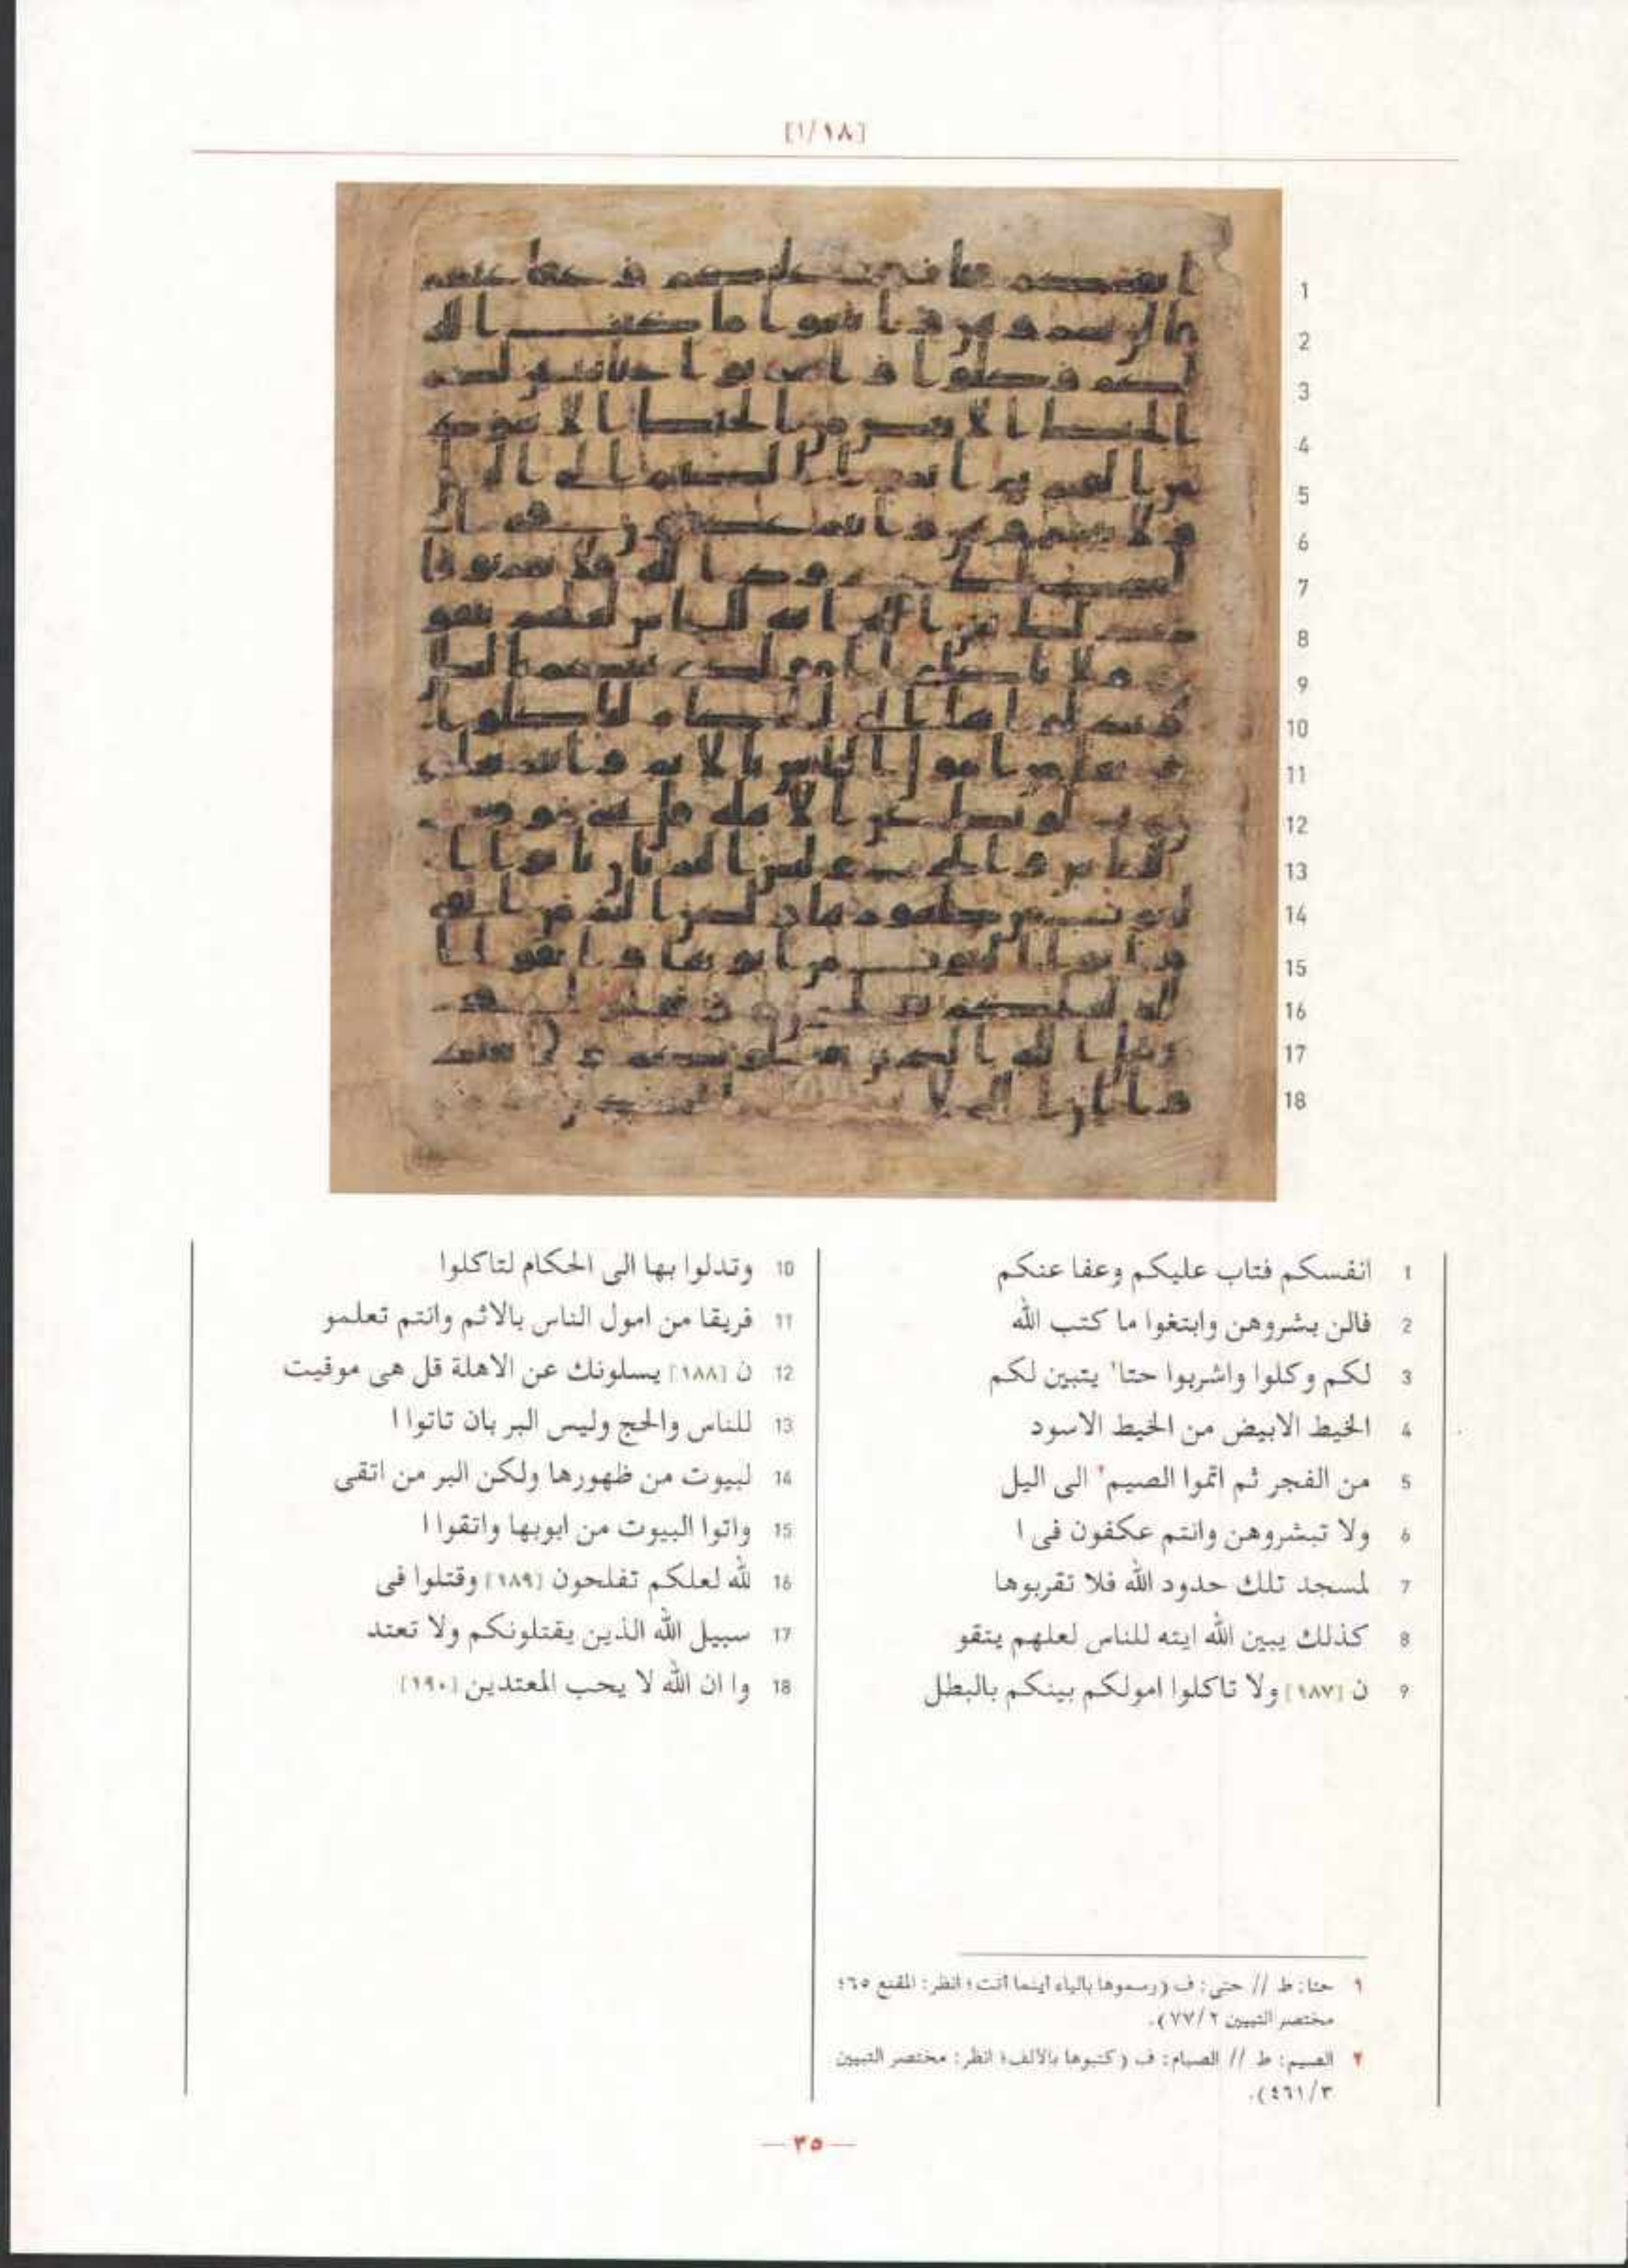 [١/١٨]
1 انفسكم فتاب عليكم وعفا عنكم
2 فالن بشروهن وابتغوا ما كتب الله
3 لكم وكلوا واشربوا حتا¹ يتبين لكم
4 الخيط الابيض من الخيط الاسود
5 من الفجر ثم اتموا الصيم² الى اليل
6 ولا تبشروهن وانتم عكفون فى ا
7 لمسجد تلك حدود الله فلا تقربوها
8 كذلك يبين الله ايته للناس لعلهم يتقو
9 ن [١٨٧] ولا تاكلوا امولكم بينكم بالبطل
10 وتدلوا بها الى الحكام لتاكلوا
11 فريقا من امول الناس بالاثم وانتم تعلمو
12 ن [١٨٨] يسلونك عن الاهلة قل هى موقيت
13 للناس والحج وليس البر بان تاتوا ا
14 لبيوت من ظهورها ولكن البر من اتقى
15 واتوا البيوت من ابوبها واتقوا ا
16 لله لعلكم تفلحون [١٨٩] وقتلوا فى
17 سبيل الله الذين يقتلونكم ولا تعتد
18 وا ان الله لا يحب المعتدين [١٩٠]
١ حتا: ط // حتى: ف (رسموها بالياء اينما اتت؛ انظر: المقنع ٦٥؛
مختصر التبيين ٧٧/٢).
٢ الصيم: ط // الصيام: ف (كتبوها بالالف؛ انظر: مختصر التبيين
٤٦١/٣).
— ٣٥ —